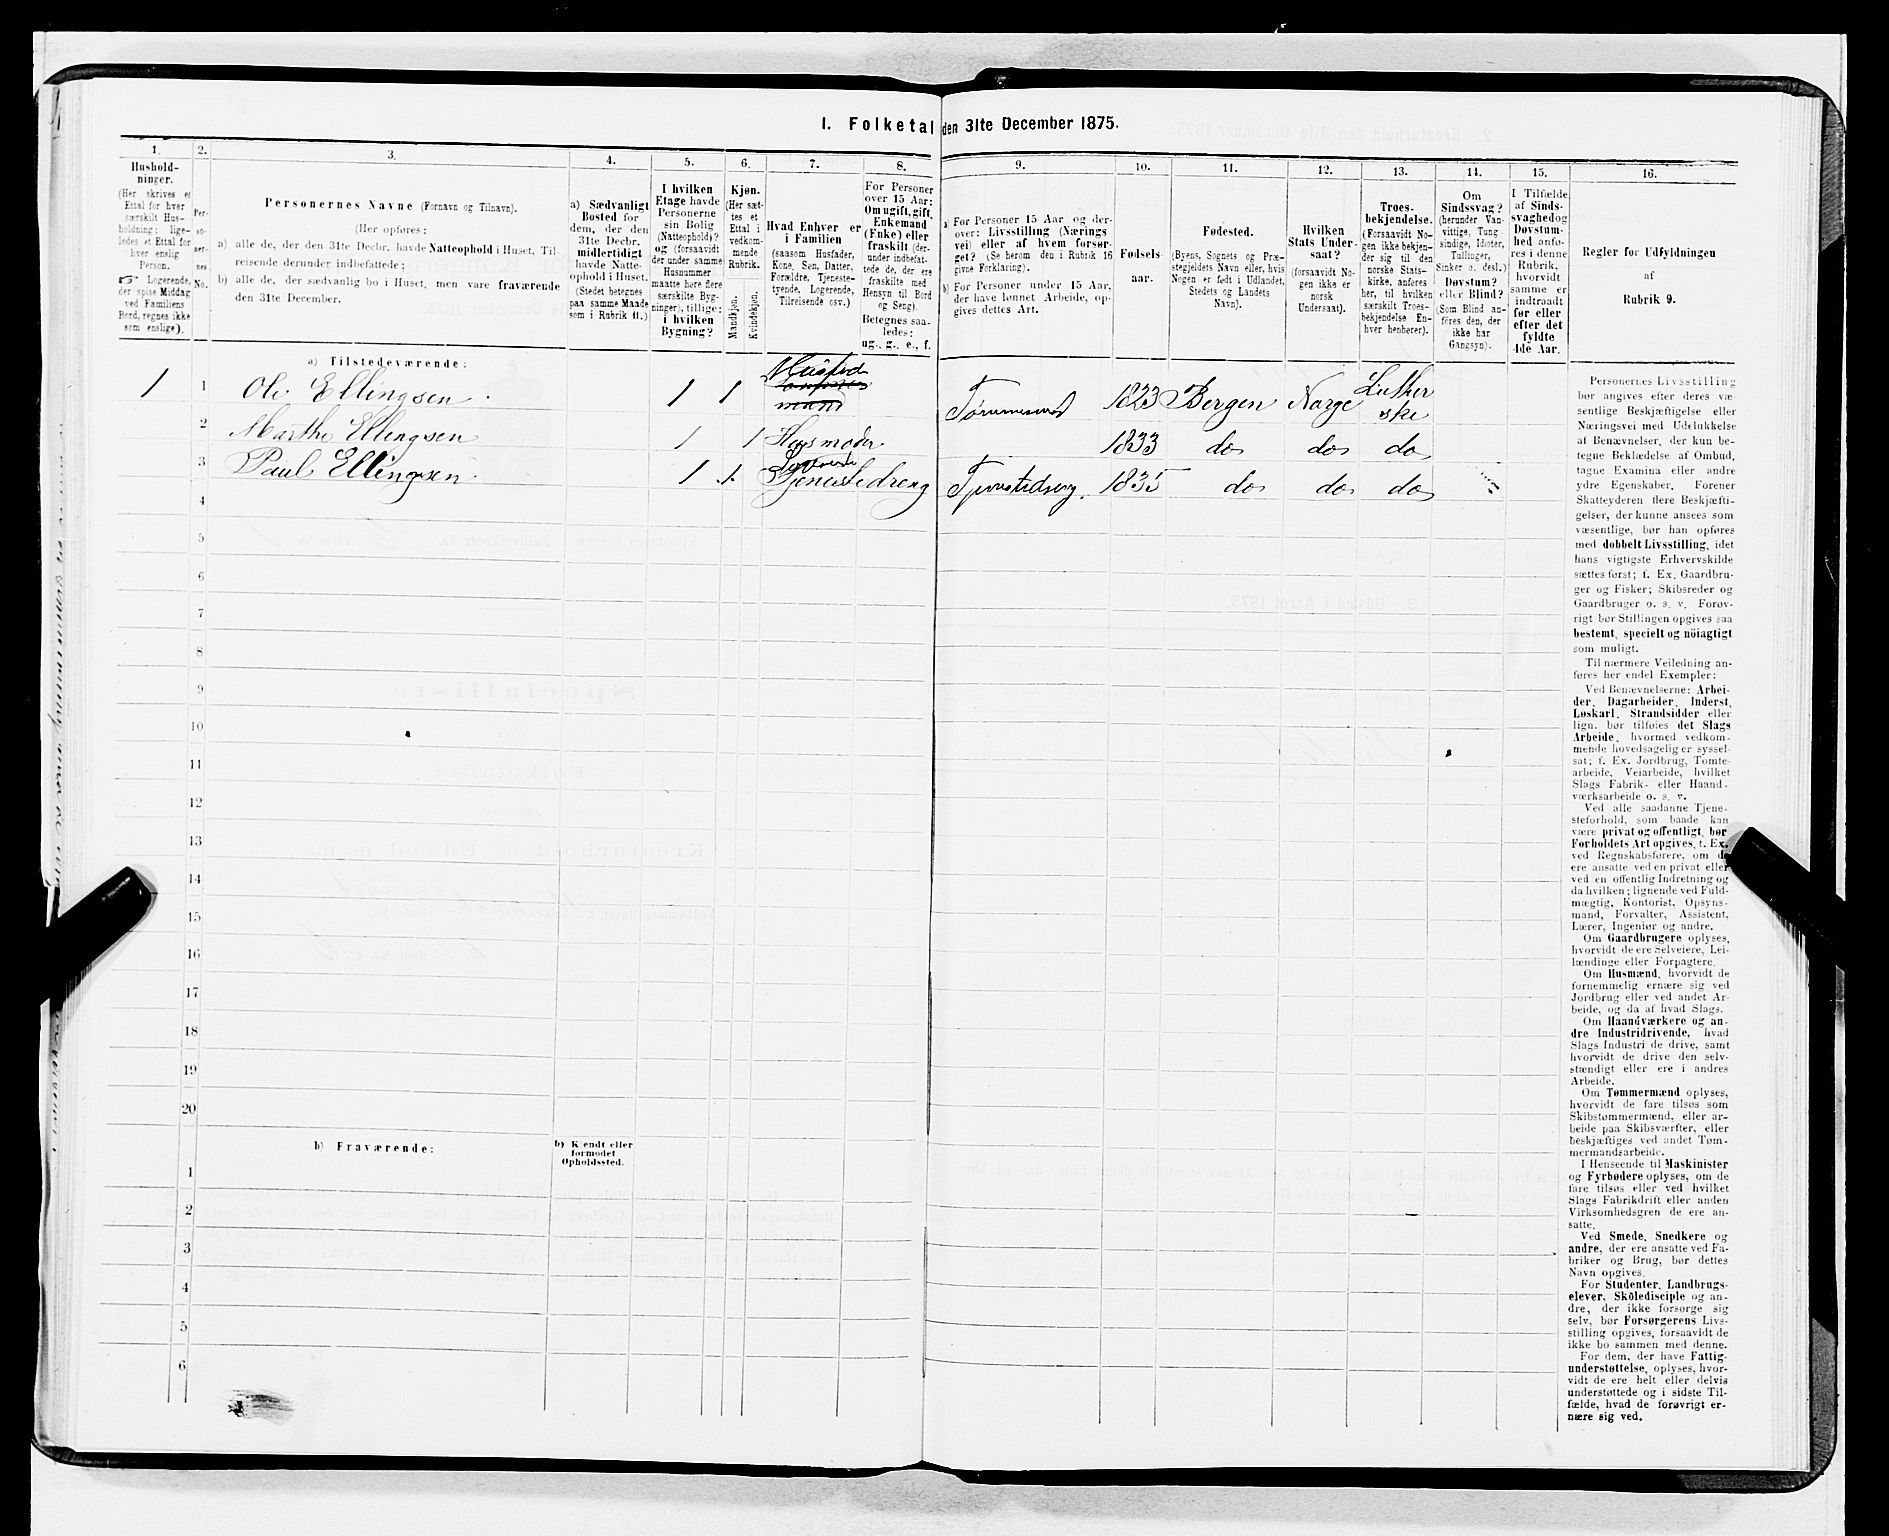 1. Folketal den 31te December 1875.
1.
2.
3.
4.
5.
6.
7.
8.
9.
10.
11.
12.
13.
14.
15.
16.
Hushold-
ninger.
(Her skrives et
Ettal for hver
særskilt Hus-
holdning; lige-
ledes et Ettal for
hver enslig
Person.
☞ Logerende,
der spise Middag
ved Familiens
Bord, regnes ikke
som enslige).
Per-
so-
ner-
nes
No.
Personernes Navne (Fornavn og Tilnavn).
(Her opføres:
a) alle de, der den 31te Decbr. havde Natteophold i Huset, Til-
reisende derunder indbefattede;
b) alle de, der sædvanlig bo i Huset, men vare fraværende
den 31te December.
a) Sædvanligt
Bosted for
dem, der den
31te Decbr.
midlertidigt
havde Natte-
ophold i Huset.
(Stedet betegnes
paa samme Maade
som i Rubrik 11.)
I hvilken
Etage havde
Personerne
sin Bolig
(Natteophold)?
og (forsaavidt
der under samme
Husnummer
maatte høre flere
særskilte Byg-
ninger), tillige:
i hvilken
Bygning?
Kjøn.
(Her sæt-
tes et
Ettal i
vedkom-
mende
Rubrik.
Mandkjøn.
Kvindekjøn.
Hvad Enhver er
i Familien
(saasom Husfader,
Kone, Søn, Datter,
Forældre, Tjeneste-
tyende, Logerende,
Tilreisende osv.)
For Personer
over 15 Aar:
Om ugift, gift,
Enkemand
(Enke) eller
fraskilt (der-
under indbefat-
tede de, der ere
fraskilte med
Hensyn til Bord
og Seng).
Betegnes saa-
ledes:
ug., g., e., f.
a) For Personer 15 Aar og der-
over: Livsstilling (Nærings
vei) eller af hvem forsør-
get? (Se herom den i Rubrik 16
givne Forklaring).
b) For Personer under 15 Aar,
der have lønnet Arbeide, op-
gives dettes Art.
Fødsels-
aar.
Fødested.
(Byens, Sognets og Præ-
stegjeldets Navn eller, hvis
Nogen er født i Udlandet,
Stedets og Landets
Navn).
Hvilken
Stats Under-
saat?
(forsaavidt No-
gen ikke er
norsk
Undersaat).
Troes-
bekjendelse.
(Forsaavidt No-
gen ikke bekjen-
der sig til den
norske Stats-
kirke, anføres
her, til hvilken
særskilt Troes-
bekjendelse En-
hver henhører).
Om
Sindssvag?
(herunder Van-
vittige, Tung
sindige, Idioter,
Tullinger,
Sinker o. desl.)
Døvstum?
eller Blind?
(Som Blind an-
føres den, der
ikke har
Gangsyn).
I Tilfælde
af Sinds-
svaghed og
Døvstum-
hed anfø-
res i denne
Rubrik,
hvorvidt
samme er
indtraadt
før eller
efter det
fyldte
4de Aar.
Regler for Udfyldningen
af
Rubrik 9.
a) Tilstedeværende:
1 1 Ole Ellingsen. 1 1 Husfad Tømmermd 1823 Bergen Norge Luther
ske
2 Marthe Ellingsen 1 1 Husmoder. 1833 do do do
3 Paul Ellingsen. 1 1. Tjenestedreng Tjenestedreng. 1835 do do do
4
5
6
7
8
9
10
11
12
13
14
15
16
17
18
19
20
b) Fraværende:
b) Kjendt eller
formodet
Opholdssted.
1
2
3
4
5
6
Personernes Livsstilling
bør angives efter deres væ
sentlige Beskjæftigelse eller
Næringsvei med Udelukkelse
af Benævnelser, der kun be-
tegne Beklædelse af Ombud,
tagne Examina eller andre
ydre Egenskaber. Forener
Skatteyderen flere Beskjæfti-
gelser, der kunne ansees som
væsentlige, bør han opføres
med dobbelt Livsstilling, idet
hans vigtigste Erhvervskilde
sættes først; f. Ex. Gaardbru-
ger og Fisker; Skibsreder og
Gaardbruger o. s. v. Forøv-
rigt bør Stillingen opgives saa
bestemt, specielt og nöiagtigt
som muligt.
Til nærmere Veiledning an-
føres her endel Exempler:
Ved Benævnelserne: Arbei-
der, Dagarbeider, Inderst,
Løskarl, Strandsidder eller
lign. bør tilføies det Slags
Arbeide, hvormed vedkom-
mende hovedsagelig er syssel-
sat; f. Ex. Jordbrug, Tomte-
arbeide, Veiarbeide, hvilket
Slags Fabrik- eller Haand-
værksarbeide o. s. v.
Ved alle saadanne Tjene-
steforhold, som baade kan
være privat og offentligt, bør
Forholdets Art opgives, f. Ex.
ved Regnskabsførere, om de
ere ansatte ved en privat eller
ved en offentlig Indretning og
da hvilken; lignende ved Fuld-
mægtig, Kontorist, Opsyns-
mand, Forvalter, Assistent,
Lærer, Ingeniør og andre.
Om Gaardbrugere oplyses,
hvorvidt de ere Selveiere, Lei-
lændinge eller Forpagtere.
Om Husmænd, hvorvidt de
fornemmelig ernære sig ved
Jordbrug eller ved andet Ar-
beide, og da af hvad Slags.
Om Haandværkere og an-
dre Industridrivende, hvad
Slags Industri de drive, samt
hvorvidt de drive den selv-
stændigt eller ere i andres
Arbeide.
Om Tømmermænd oplyses,
hvorvidt de fare tilsøs som
Skibstømmermænd, eller ar-
beide paa Skibsværfter, eller
beskjæftiges ved andet Tøm-
mermandsarbeide.
I Henseende til Maskinister
og Fyrbødere oplyses, om de
fare tilsøs eller ved hvilket
Slags Fabrikdrift eller anden
Virksomhedsgren de ere an-
satte.
Ved Smede, Snedkere og
andre, der ere ansatte ved Fa-
briker og Brug, bør dettes
Navn opgives.
For Studenter, Landbrugs-
elever, Skôledisciple og an-
dre, der ikke forsørge sig
selv, bør Forsørgerens Livs-
stilling opgives, forsaavidt de
ikke bo sammen med denne.
For dem, der have Fattig-
understøttelse, oplyses, hvor-
vidt de ere helt eller delvis
understøttede og i sidste Til-
fælde, hvad de forøvrigt er-
nære sig ved.